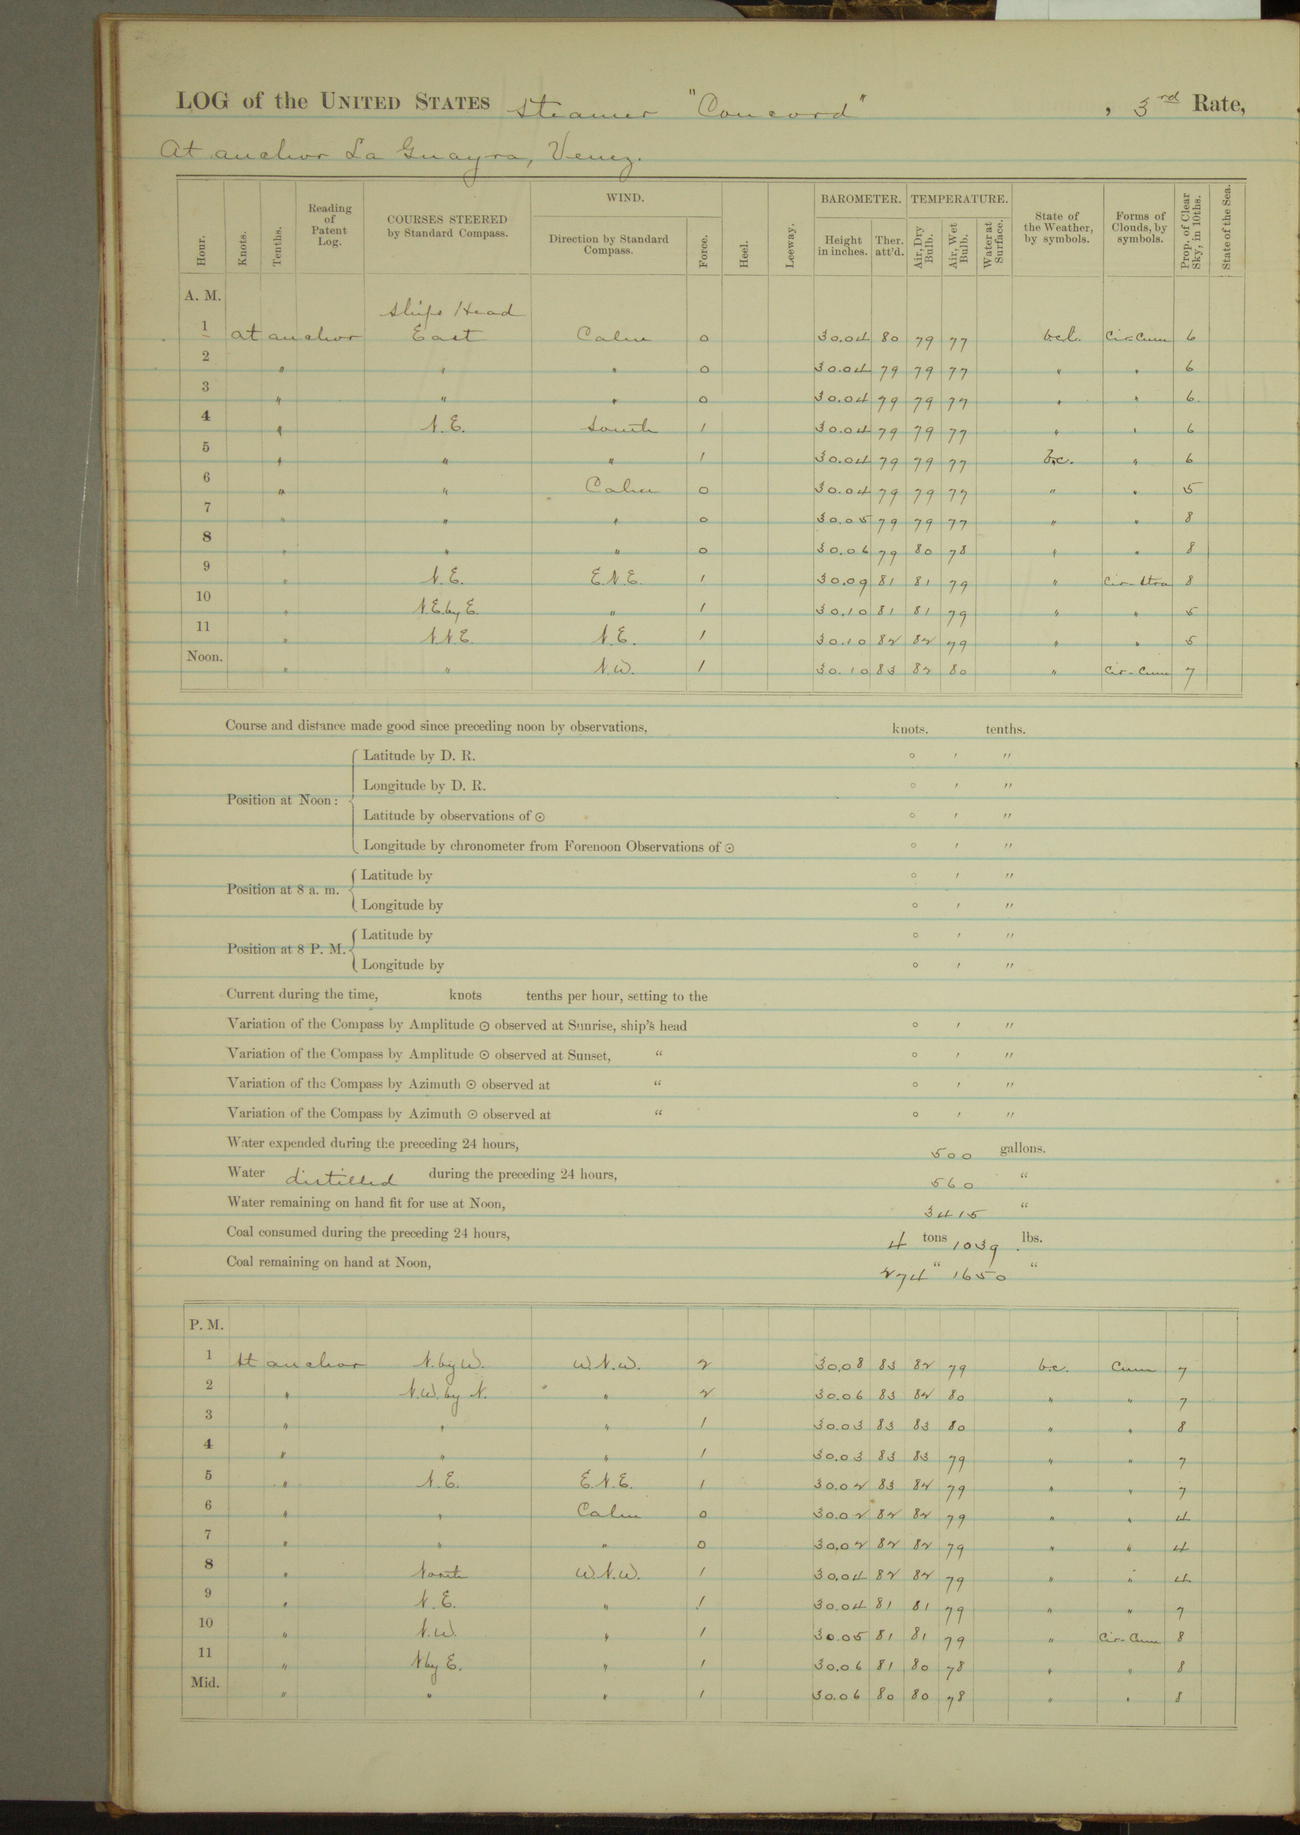 LOG of the UNITED STATES Steamer "Concord" , 3rd Rate,
At anchor La Guayra, Venez.
Hour. Knots. Tenths. Reading of Patent Log. COURSES STEERED by Standard Compass. WIND. Direction by Standard Compass. Force. Heel. Leeway. BAROMETER. Height in inches. Ther. att'd. TEMPERATURE. Air, Dry Bulb. Air, Wet Bulb. Water at Surface. State of the Weather, by symbols. Forms of Clouds, by symbols. Prop. of Clear Sky, in 10ths. State of the Sea.
A. M.
Ships Head
1 at anchor East Calm 0 30.04 80 79 77 b.c.l. Cir-Cum 6
2 " " " 0 30.04 79 79 77 " " 6
3 " " " 0 30.04 79 79 77 " " 6
4 " N.E. South 1 30.04 79 79 77 " " 6
5 " " " 1 30.04 79 79 77 b.c. " 6
6 " " Calm 0 30.04 79 79 77 " " 5
7 " " " 0 30.05 79 79 77 " " 8
8 " " " 0 30.06 79 80 78 " " 8
9 " N.E. E.N.E. 1 30.09 81 81 79 " Cir-Stra 8
10 " N.E. by E. " 1 30.10 81 81 79 " " 5
11 " N.N.E. N.E. 1 30.10 82 82 79 " " 5
Noon. " " N.W. 1 30.10 83 82 80 " Cir-Cum 7
Course and distance made good since preceding noon by observations, knots. tenths.
Position at Noon: Latitude by D. R. ° ′ ″
Longitude by D. R. ° ′ ″
Latitude by observations of ⊙ ° ′ ″
Longitude by chronometer from Forenoon Observations of ⊙ ° ′ ″
Position at 8 a. m. Latitude by ° ′ ″
Longitude by ° ′ ″
Position at 8 P. M. Latitude by ° ′ ″
Longitude by ° ′ ″
Current during the time, knots tenths per hour, setting to the
Variation of the Compass by Amplitude ⊙ observed at Sunrise, ship's head ° ′ ″
Variation of the Compass by Amplitude ⊙ observed at Sunset, " ° ′ ″
Variation of the Compass by Azimuth ⊙ observed at " ° ′ ″
Variation of the Compass by Azimuth ⊙ observed at " ° ′ ″
Water expended during the preceding 24 hours, 500 gallons.
Water distilled during the preceding 24 hours, 560 "
Water remaining on hand fit for use at Noon, 3415 "
Coal consumed during the preceding 24 hours, 4 tons 1039 lbs.
Coal remaining on hand at Noon, 274 " 1650 "
P. M.
1 At anchor N. by W. W.N.W. 2 30.08 83 82 79 b.c. Cum 7
2 " N.W. by N. " 2 30.06 83 82 80 " " 7
3 " " " 1 30.03 83 83 80 " " 8
4 " " " 1 30.03 83 83 79 " " 7
5 " N.E. E.N.E. 1 30.02 83 82 79 " " 7
6 " " Calm 0 30.02 82 82 79 " " 4
7 " " " 0 30.02 82 82 79 " " 4
8 " North W.N.W. 1 30.04 82 82 79 " " 4
9 " N.E. " 1 30.04 81 81 79 " " 7
10 " N.W. " 1 30.05 81 81 79 " Cir-Cum 8
11 " N by E. " 1 30.06 81 80 78 " " 8
Mid. " " " 1 30.06 80 80 78 " " 8